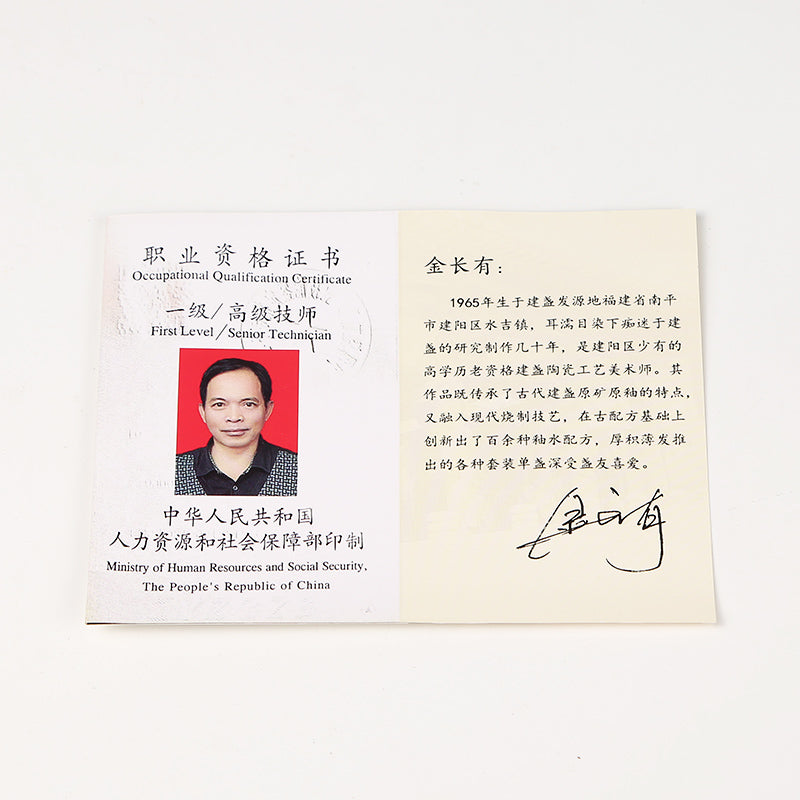 职业资格证书
Occupational Qualification Certificate
一级/高级技师
First Level/Senior Technician
中华人民共和国
人力资源和社会保障部印制
Ministry of Human Resources and Social Security,
The People's Republic of China
金长有:
1965年生于建盏发源地福建省南平
市建阳区水吉镇,耳濡目染下痴迷于建
盏的研究制作几十年,是建阳区少有的
高学历老资格建盏陶瓷工艺美术师。其
作品既传承了古代建盏原矿原釉的特点,
又融入现代烧制技艺,在古配方基础上
创新出了百余种釉水配方,厚积薄发推
出的各种套装单盏深受盏友喜爱。
金长有